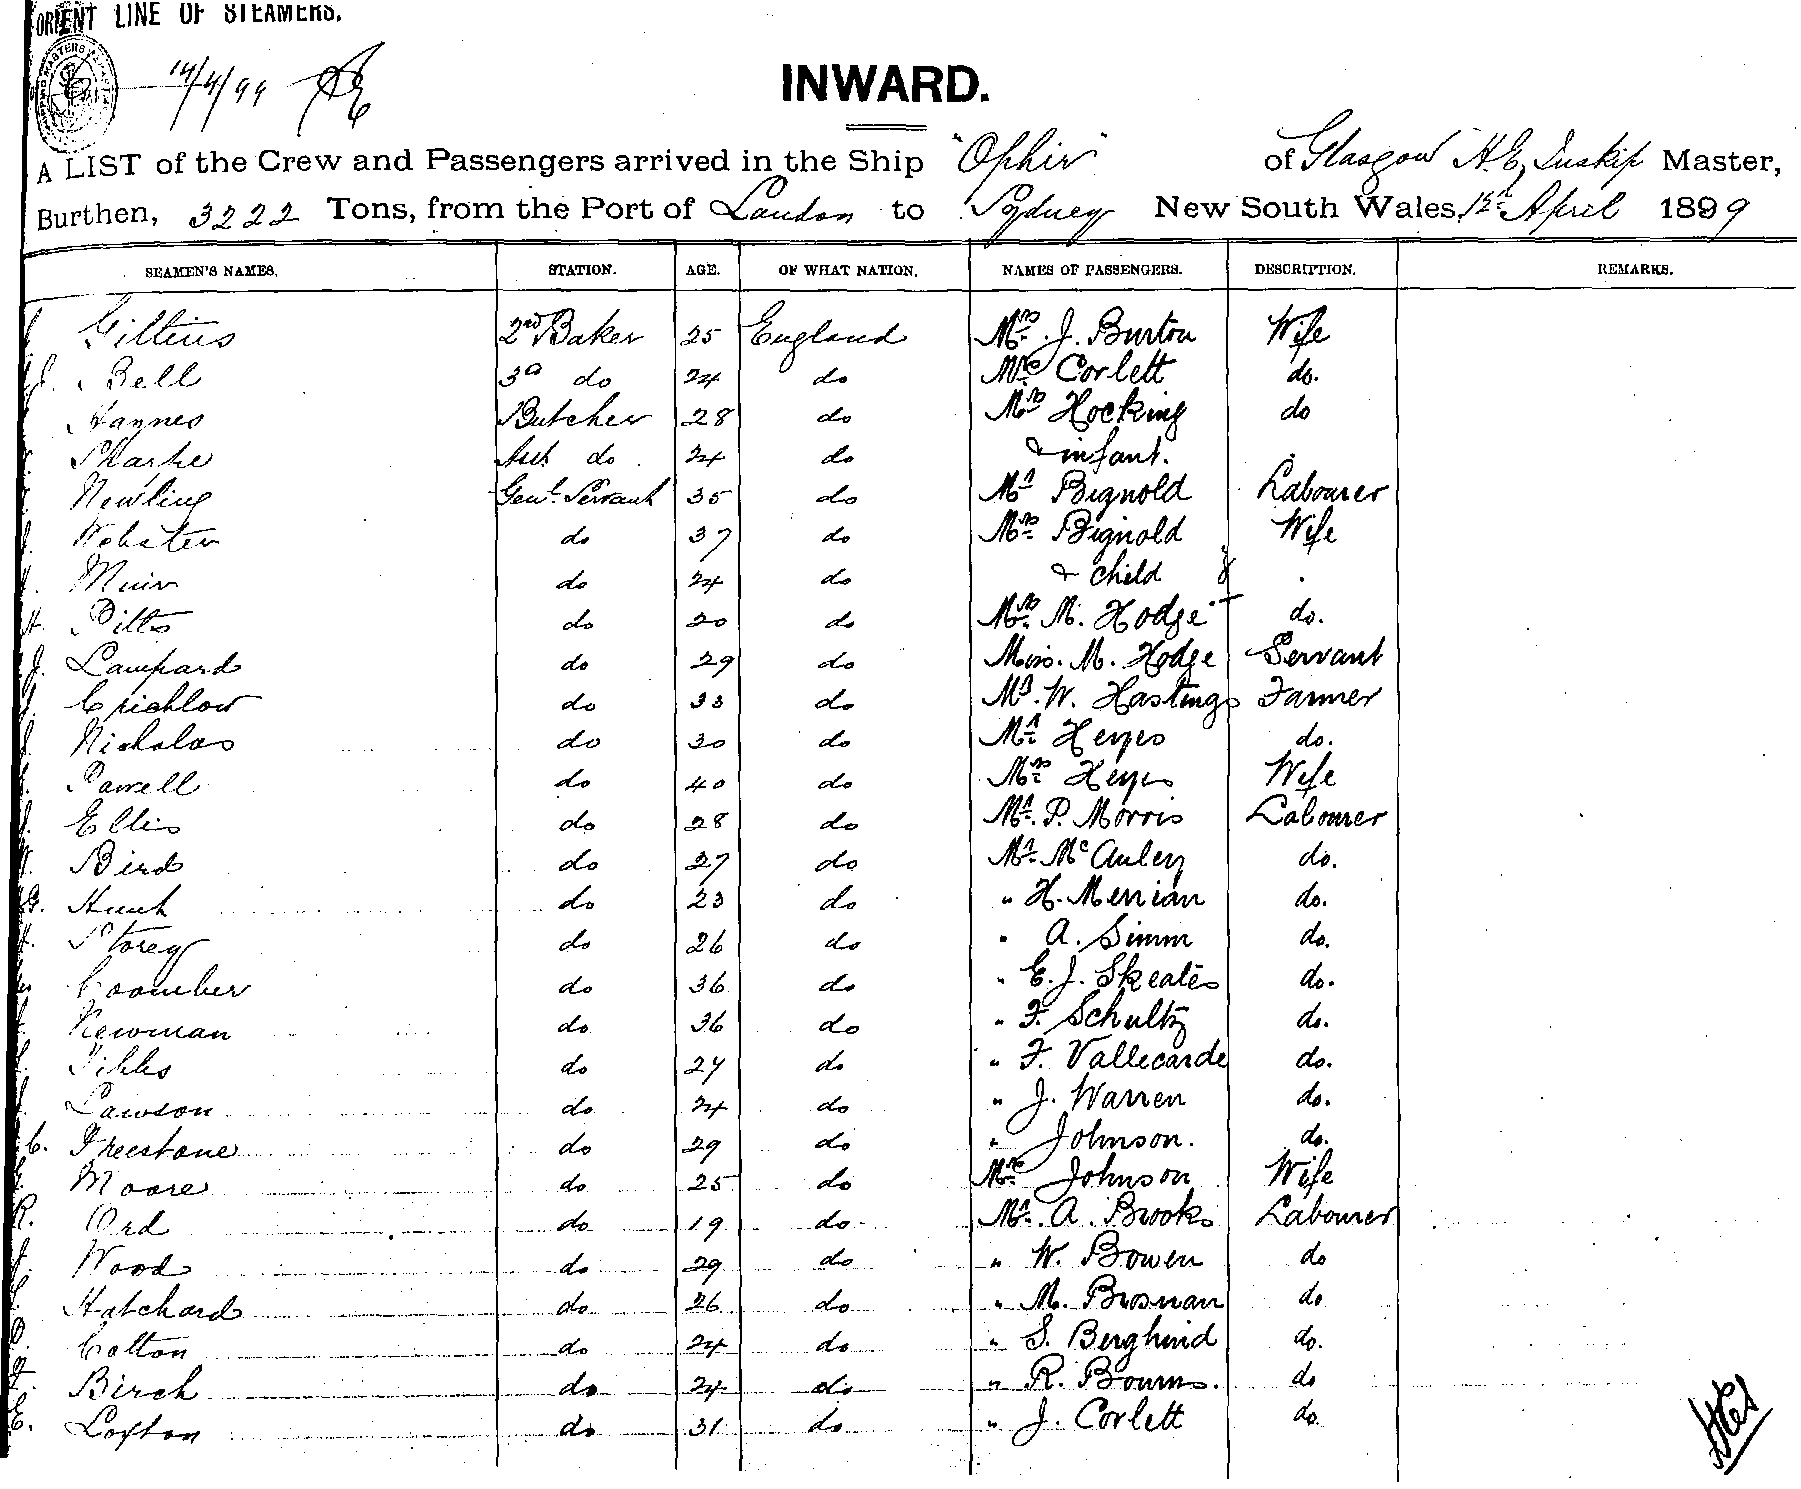 ORIENT LINE OF STEAMERS.
14/4/99
INWARD.
A LIST of the Crew and Passengers arrived in the Ship "Ophir" of Glasgow A. E. Inskip Master,
Burthen, 3222 Tons, from the Port of London to Sydney New South Wales, 12th April 1899
SEAMEN'S NAMES. STATION. AGE. OF WHAT NATION. NAMES OF PASSENGERS. DESCRIPTION. REMARKS.
Gittins 2nd Baker 25 England Mrs. J. Burton Wife
J. Bell 3d do 24 do Mrs Corlett do.
Haynes Butcher 28 do Mrs Hocking do
Sharpe Asst do 24 do & infant.
Newling Genl. Servant 35 do Mr Bignold Labourer
Webster do 37 do Mrs Bignold Wife
Muir do 24 do & child
Pitts do 20 do Mrs. M. Hodge do.
J. Lampard do 29 do Miss. M. Hodge Servant
Crichlow do 33 do Mr. W. Hastings Farmer
Nicholas do 30 do Mr Heyes do.
Powell do 40 do Mrs Heyes Wife
Ellis do 28 do Mr. P. Morris Labourer
Bird do 27 do Mr. McAuley do.
G. Hunt do 23 do " H. Merrian do.
Storey do 26 do " A. Simm do.
Coomber do 36 do " E. J. Skeates do.
Newman do 36 do " F. Schultz do.
Tibbs do 27 do " F. Vallecarde do.
Lawson do 24 do " J. Warren do.
C. Freestone do 29 do " Johnson. do.
Moore do 25 do Mrs Johnson Wife
R. Ord do 19 do Mr. A. Brooks Labourer
Wood do 29 do " W. Bowen do
Hatchard do 26 do " M. Brosnan do
Colton do 24 do " S. Berglund do.
Birch do 24 do " R. Bourns. do
E. Loxton do 31 do " J. Corlett do.